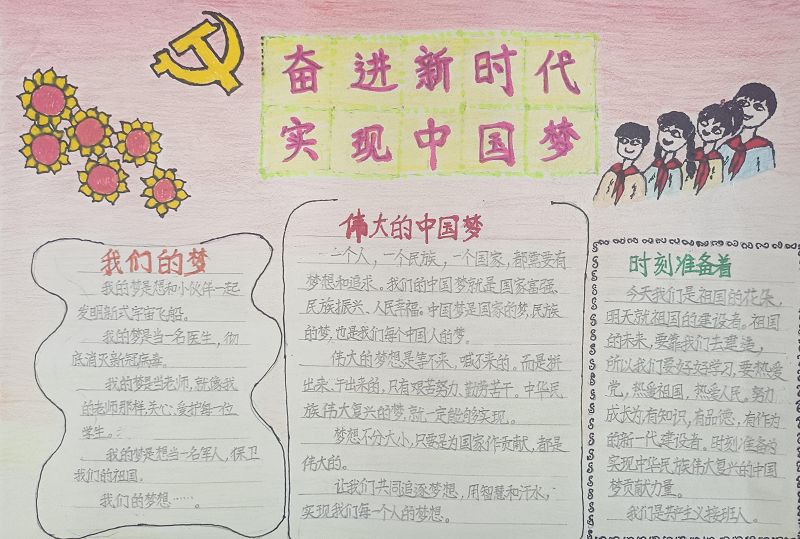 奋进新时代
实现中国梦
我们的梦
我的梦是想和小伙伴一起
发明新式宇宙飞船。
我的梦是当一名医生，彻
底消灭新冠病毒。
我的梦是当老师，就像我
的老师那样关心、爱护每一位
学生。
我的梦是想当一名军人，保卫
我们的祖国。
我们的梦想……。
伟大的中国梦
一个人，一个民族，一个国家，都需要有
梦想和追求。我们的中国梦就是国家富强、
民族振兴、人民幸福。中国梦是国家的梦，民族
的梦，也是我们每个中国人的梦。
伟大的梦想是等不来，喊不来的。而是拼
出来、干出来的，只有艰苦努力、勤劳苦干。中华民
族伟大复兴的梦，就一定能够实现。
梦想不分大小，只要是为国家作贡献，都是
伟大的。
让我们共同追逐梦想，用智慧和汗水，
实现我们每一个人的梦想。
时刻准备着
今天我们是祖国的花朵，
明天就祖国的建设者。祖国
的未来，要靠我们去建造，
所以我们要好好学习，要热爱
党，热爱祖国，热爱人民。努力
成长为有知识，有品德，有作为
的新一代建设者。时刻准备为
实现中华民族伟大复兴的中国
梦贡献力量。
我们是共产主义接班人。